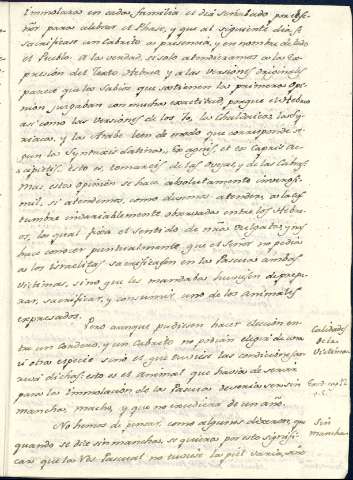 Immolaran en cada familia el dia señalado por el Se-
ñor para celebrar el Phase, y que al siguiente dia se
sacrificase un Cabrito a presencia, y en nombre de todo
el Pueblo. A la verdad, si solo atendieramos a la Ex-
presion del Texto Hebreo y a las Versiones Orientales
parece que los Sabios que sostienen la primera Opi-
nion juzgaban con mucha exactitud, porque el Hebreo
asi como las Versiones de los 70, la Chaldaica, la Sy-
riaca, y la Arabe leen de modo que corresponde se-
gun la Syntaxis Latina, Ex agnis, et ex Capris ac-
cipietis. Esto es, tomareis de las Ovejas, y de las Cabras.
Mas esta opinion se hace absolutamente inverosi-
mil, si atendemos, como devemos atender, a la cos-
tumbre invariablemente observada entre los Hebre-
os, la qual fixa el sentido de nra Vulgata, y nos
hace conocer puntualmente, que el Señor no pedia
a los Israelitas sacrificasen en la Pascua ambas
victimas, sino que les mandaba hubiesen de prepa-
rar, sacrificar, y consumir uno de los animales
expresados.
Pero aunque pudiesen hacer eleccion en-
tre un Cordero, y un Cabrito no podian elegir de una
ú otra especie sino el que tuviese las condiciones
dichas; esto es el Animal que havia de servir
para la Immolacion de la Pascua devia ser sin
mancha, macho, y que no excediera de un año.
No hemos de pensar, como algunos dixeron, que
quando se dice sin mancha, se quiera por esto signifi-
car que la Res Pasqual no tuviese la piel varia, sino
Calidades
de la
Victima
Sin
mancha